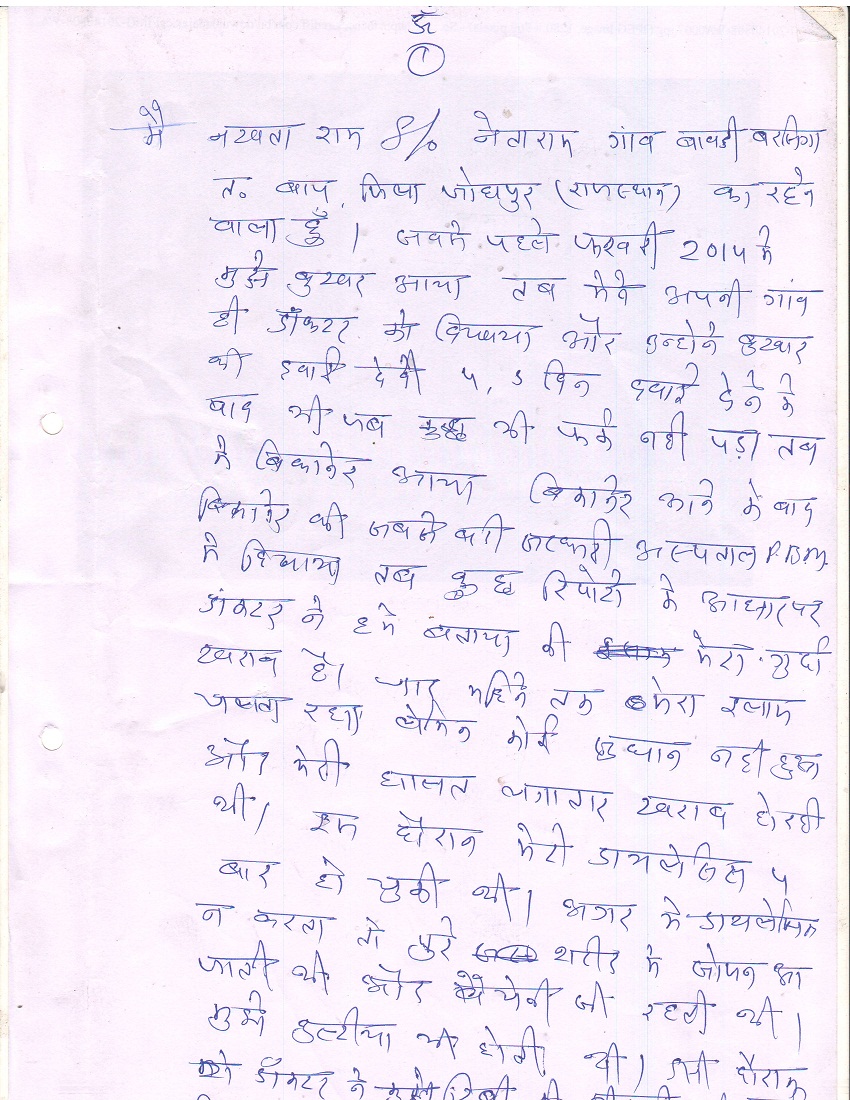 ॐ
1
मै नखता राम S/o नेताराम गांव बावडी बरसिंगा
त. बाप, जिला जोधपुर (राजस्थान) का रहने
वाला हुँ। सबसे पहले फरवरी 2014 मे
मुझे बुखार आया तब मेने अपनी गांव
ही डॉक्टर को दिखाया और उन्होने बुखार
की दवाई देदी 4, 5 दिन दवाई देने के
बाद भी जब कुछ भी फर्क नही पड़ा तब
मे बिकानेर आया बिकानेर आने के बाद
बिकानेर की सबसे बडी सरकारी अस्पताल P.B.M.
मे दिखाया तब कुछ रिपोर्टो के आधार पर
डॉक्टर ने हमे बताया की मेरा गुर्दा
खराब है। चार महिने तक मेरा इलाज
चलता रहा लेकिन कोई सुधान नही हुआ
और मेरी हालत लगातार खराब हो रही
थी। इस दौरान मेरी डायलेसिस 4
बार हो चुकी थी। अगर मे डायलेसिस
न करता तो पुरे शरीर मे सोजन आ
जाती थी और बैचेनी सी रहती थी।
मुझे उल्टीया भी होती थी। इसी दौरान
डॉक्टर ने